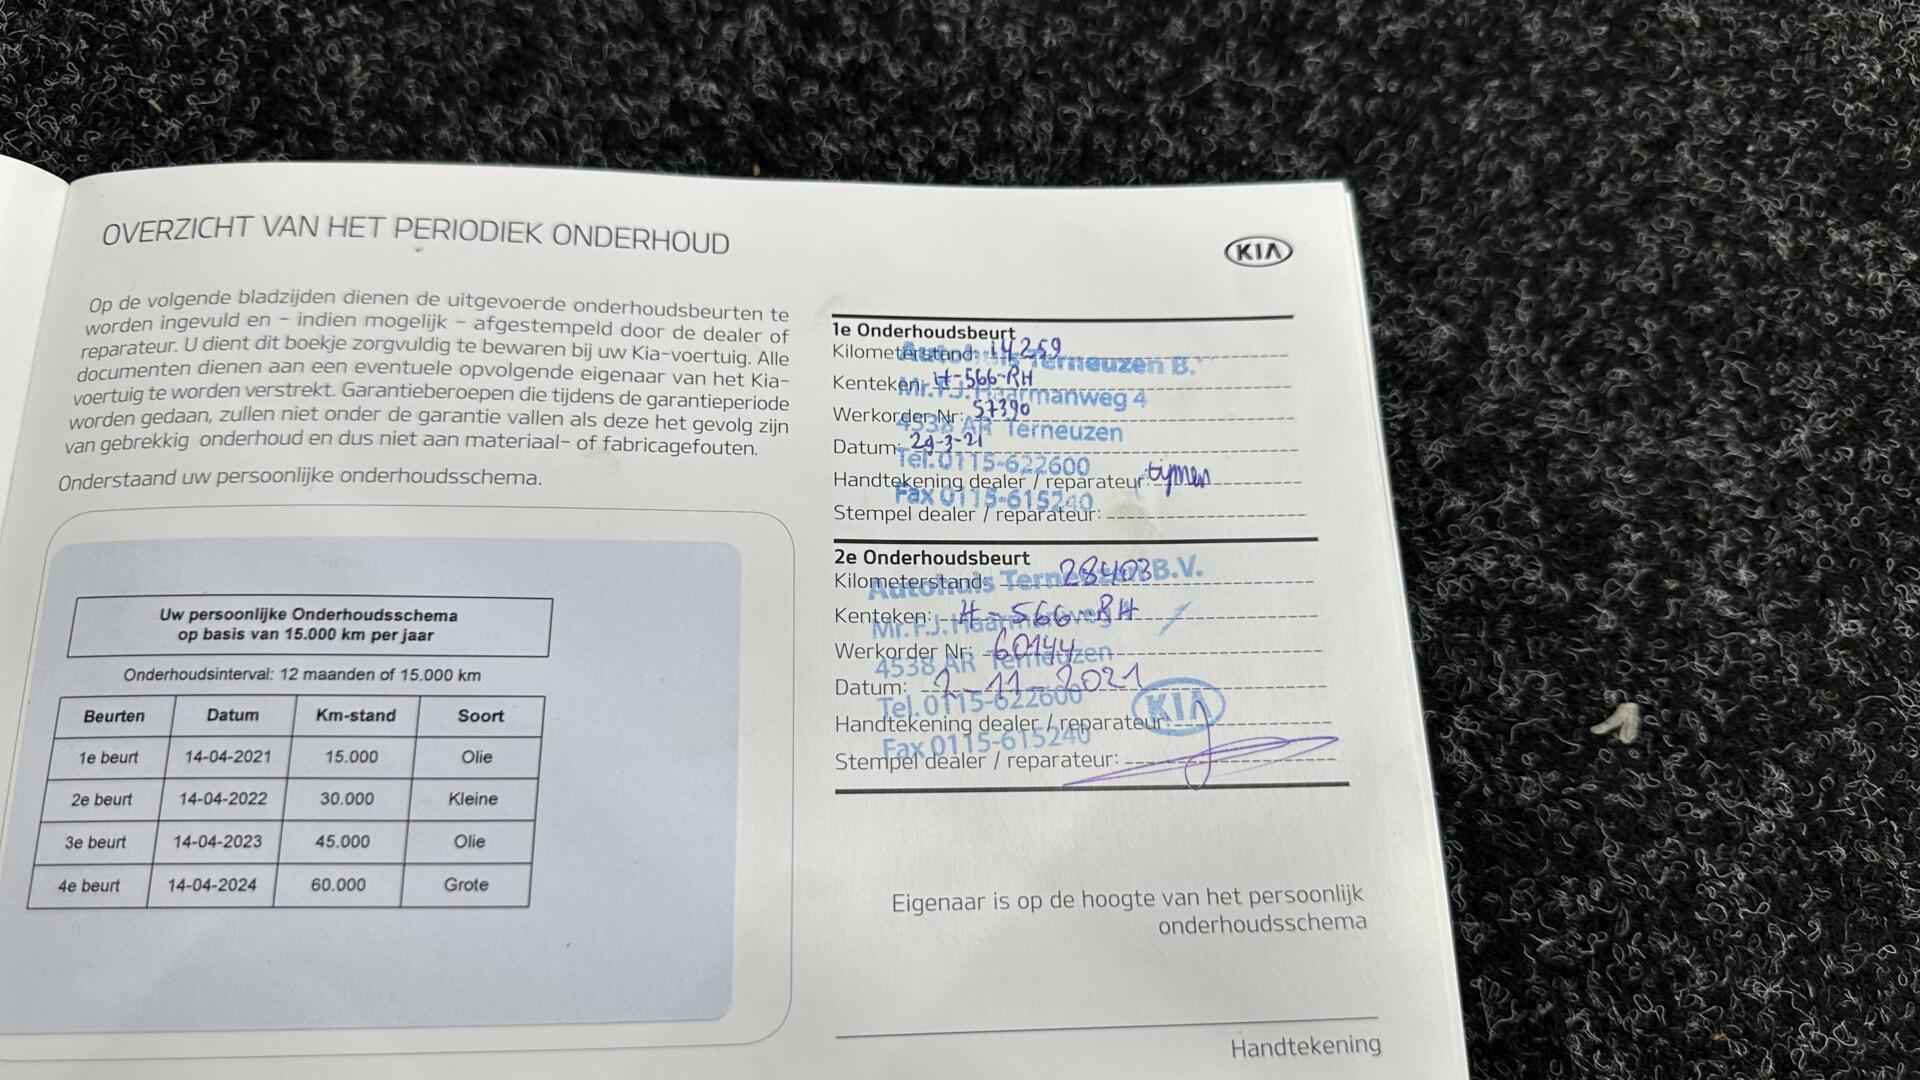 OVERZICHT VAN HET PERIODIEK ONDERHOUD
Op de volgende bladzijden dienen de uitgevoerde onderhoudsbeurten te
worden ingevuld en – indien mogelijk – afgestempeld door de dealer of
reparateur. U dient dit boekje zorgvuldig te bewaren bij uw Kia-voertuig. Alle
documenten dienen aan een eventuele opvolgende eigenaar van het Kia-
voertuig te worden verstrekt. Garantieberoepen die tijdens de garantieperiode
worden gedaan, zullen niet onder de garantie vallen als deze het gevolg zijn
van gebrekkig onderhoud en dus niet aan materiaal- of fabricagefouten.
Onderstaand uw persoonlijke onderhoudsschema.
Uw persoonlijke Onderhoudsschema
op basis van 15.000 km per jaar
Onderhoudsinterval: 12 maanden of 15.000 km
Beurten Datum Km-stand Soort
1e beurt 14-04-2021 15.000 Olie
2e beurt 14-04-2022 30.000 Kleine
3e beurt 14-04-2023 45.000 Olie
4e beurt 14-04-2024 60.000 Grote
KIA
1e Onderhoudsbeurt
Kilometerstand: 14259
Autohuis Terneuzen B.
Kenteken: H-566-RH
Mr. F.J. Haarmanweg 4
Werkorder Nr: 57390
4538 AR Terneuzen
Datum: 29-3-21
Tel. 0115-622600
Handtekening dealer / reparateur: tymen
Fax 0115-615240
Stempel dealer / reparateur:
2e Onderhoudsbeurt
Kilometerstand: 28403
Autohuis Terneuzen B.V.
Kenteken: H-566-RH
Mr. F.J. Haarmanweg
Werkorder Nr: 60144
4538 AR Terneuzen
Datum: 2-11-2021
Tel. 0115-622600
KIA
Handtekening dealer / reparateur:
Fax 0115-615240
Stempel dealer / reparateur:
Eigenaar is op de hoogte van het persoonlijk
onderhoudsschema
Handtekening